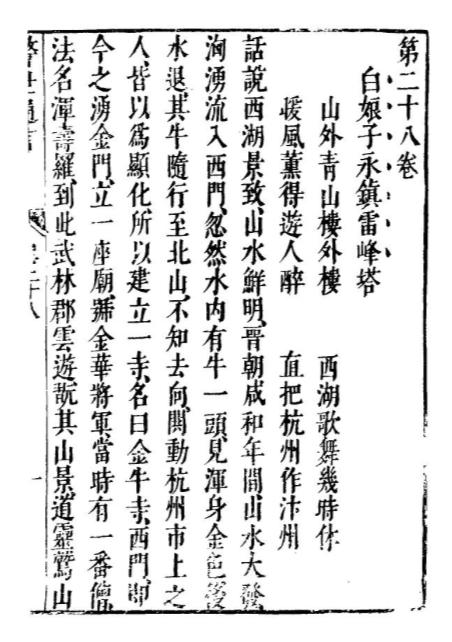 第二十八卷
白娘子永鎮雷峰塔
山外青山樓外樓　西湖歌舞幾時休
暖風薰得遊人醉　直把杭州作汴州
話說西湖景致、山水鮮明、晉朝咸和年間、山水大發
洶湧流入西門、忽然水內有牛一頭、見渾身金色、後
水退、其牛隨行至北山、不知去向、鬨動杭州市上之
人、皆以爲顯化、所以建立一寺、名曰金牛寺、西門、卽
今之湧金門、立一座廟、號金華將軍、當時有一番僧
法名渾壽羅、到此武林郡雲遊、翫其山景、道靈鷲山
警世通言　卷二十八　一